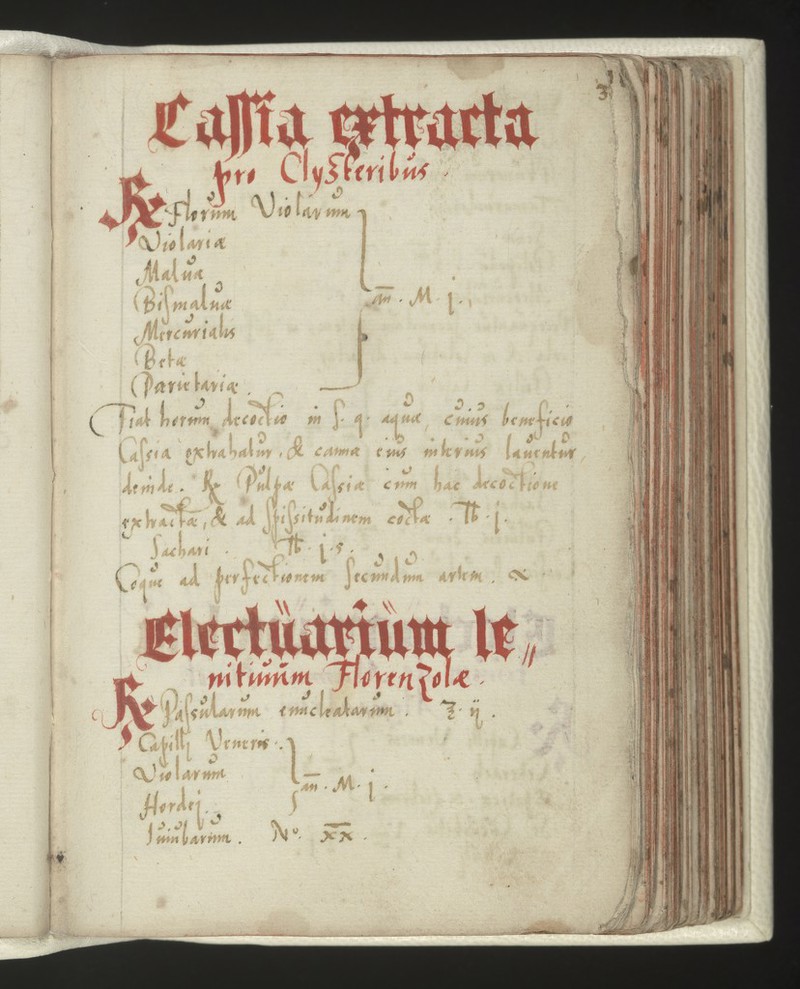 3
Cassia extracta
pro Clÿsteribus.
℞ Florum Violarum
Violariæ
Maluæ
Bismaluæ
Mercurialis
Betæ
Parietariæ.
añ. M. j.
Fiat horum decoctio in s. q. aquæ, cuius beneficio
Cassia extrahatur, & cannæ eius interius lauentur,
deinde. ℞ Pulpæ Cassiæ cum hac decoctione
extractæ, & ad spissitudinem coctæ. ℔. j.
Sachari. ℔. j. s.
Coque ad perfectionem secundum artem.
Electüariüm le〃
nitiuum Florenzolæ.
℞ Passularum enucleatarum. ℥. ij.
Capillj Veneris.
Violarum
Hordej.
añ. M. j.
Iuiubarum. Nº. xx.